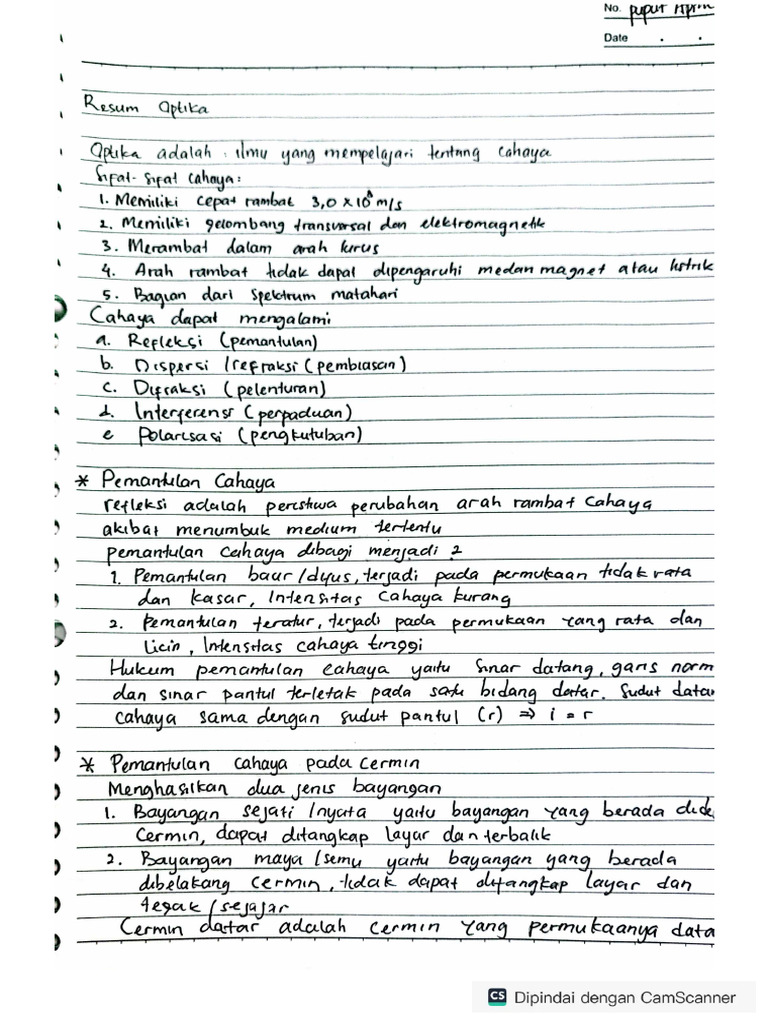 No. puput
Date . .
Resum Optika
Optika adalah : ilmu yang mempelajari tentang Cahaya
Sifat-sifat Cahaya :
1. Memiliki cepat rambat 3,0 x 10⁸ m/s
2. Memiliki gelombang transversal dan elektromagnetik
3. Merambat dalam arah lurus
4. Arah rambat tidak dapat dipengaruhi medan magnet atau listrik
5. Bagian dari spektrum matahari
Cahaya dapat mengalami
a. Refleksi (pemantulan)
b. Dispersi / refraksi (pembiasan)
c. Difraksi (pelenturan)
d. Interferensi (perpaduan)
e Polarisasi (pengkutuban)
* Pemantulan Cahaya
refleksi adalah peristiwa perubahan arah rambat Cahaya
akibat menumbuk medium tertentu
pemantulan cahaya dibagi menjadi 2
1. Pemantulan baur / difus, terjadi pada permukaan tidak rata
dan kasar, Intensitas Cahaya kurang
2. Pemantulan teratur, terjadi pada permukaan yang rata dan
Licin, Intensitas cahaya tinggi
Hukum pemantulan cahaya yaitu sinar datang, garis norm
dan sinar pantul terletak pada satu bidang datar. Sudut data
cahaya sama dengan sudut pantul (r) ⇒ i = r
* Pemantulan cahaya pada cermin
Menghasilkan dua jenis bayangan
1. Bayangan sejati / nyata yaitu bayangan yang berada dide
Cermin, dapat ditangkap layar dan terbalik
2. Bayangan maya / semu yaitu bayangan yang berada
dibelakang cermin, tidak dapat ditangkap layar dan
tegak / sejajar
Cermin datar adalah cermin yang permukaanya data
CS Dipindai dengan CamScanner